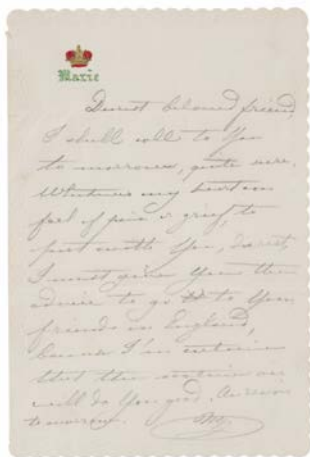 Marie
Dearest beloved friend,
I shall call to You
to morrow, quite sure.
Whatever my heart can
feel of pain & grief, to
part with You, dearest,
I must give You the
advice to go to Your
friends in England,
because I'm certain
that the native air
will do You good. Au revoir
tomorrow.